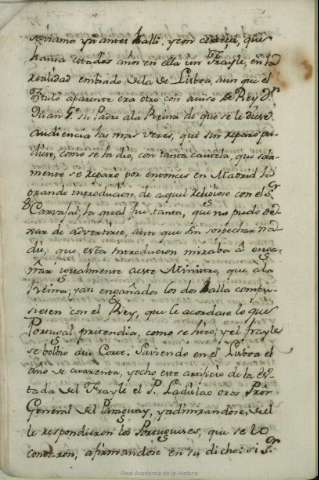 antes halló, y con
havia años en ella un Frayle, en la
realidad embiado de la de Lisboa, aunque el
titulo aparente era otro con aviso de Rey Dn
Juan 5º su Padre a la Reina de que se le diese
audiencia las mas veces, que sin reparo pu-
diese, como se la dio, con tanta cautela, que sola-
mente se reparó por entonces en Madrid la
grande introducion, de aquel Religioso con el Sr
Carvajal, la qual fue tanta, que no pudo de-
xar de advertirse, aunque sin sospechar na-
die, que esta introducion miraba à enga-
ñar igualmente à este Ministro, que a la
Reina, y así engañados los dos halla consi-
guiesen con el Rey, que le acordase lo que
Portugal pretendia, como se hizo, y el frayle
se bolvio a su Corte. Saviendo en el Lisboa el
año de cinquenta, y echo este artificio de la Es-
tada del Frayle el P. Ladislao oros Pror
General del Paraguay, y admirandose, del
le respondieron los Portugueses, que se le
conocian, afirmandose en su dicho: si Sr
Real Academia de la Historia